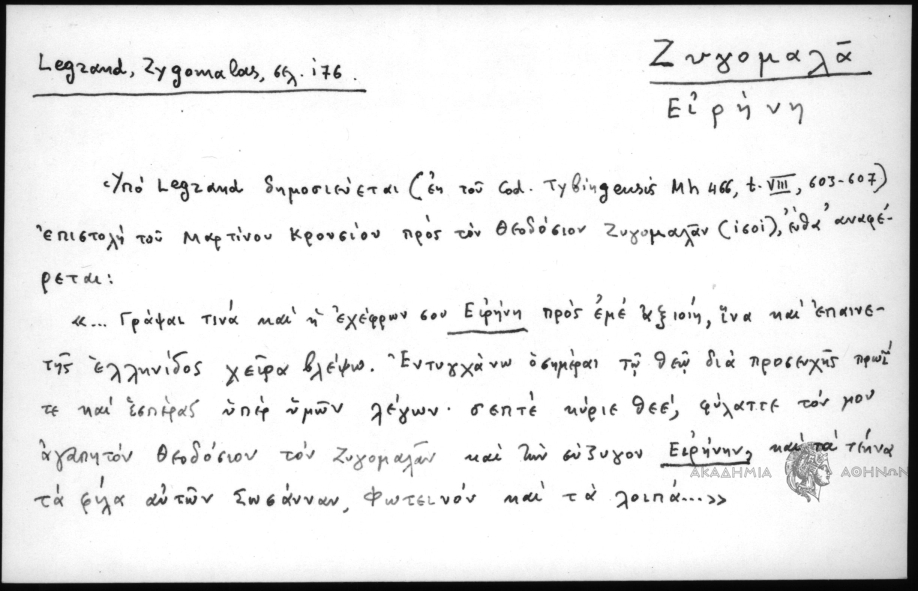 Legrand, Zygomalas, σελ. 176.
Ζυγομαλᾶ
Εἰρήνη
Ὑπό Legrand δημοσιεύεται (ἐκ τοῦ Cod. Tybingensis Mh 466, t. VIII, 603-607)
ἐπιστολή τοῦ Μαρτίνου Κρουσίου πρός τόν Θεοδόσιον Ζυγομαλᾶν (ἰσοί), ἔνθα ἀναφέ-
ρεται:
«... Γράψαι τινά καί ἡ ἐχέφρων σου Εἰρήνη πρός ἐμέ ἀξιοίη, ἵνα καί ἐπαινε-
τῆς ἑλληνίδος χεῖρα βλέψω. Ἐντυγχάνω ὁσημέραι τῷ θεῷ διά προσευχῆς πρωΐ
τε καί ἑσπέρας ὑπέρ ὑμῶν λέγων· σεπτέ κύριε θεέ, φύλαττε τόν μου
ἀγαπητόν Θεοδόσιον τόν Ζυγομαλᾶν καί τήν σύζυγον Εἰρήνην, καί τά τέκνα
τά φίλα αὐτῶν Σωσάνναν, Φωτεινόν καί τά λοιπά...»
ΑΚΑΔΗΜΙΑ ΑΘΗΝΩΝ